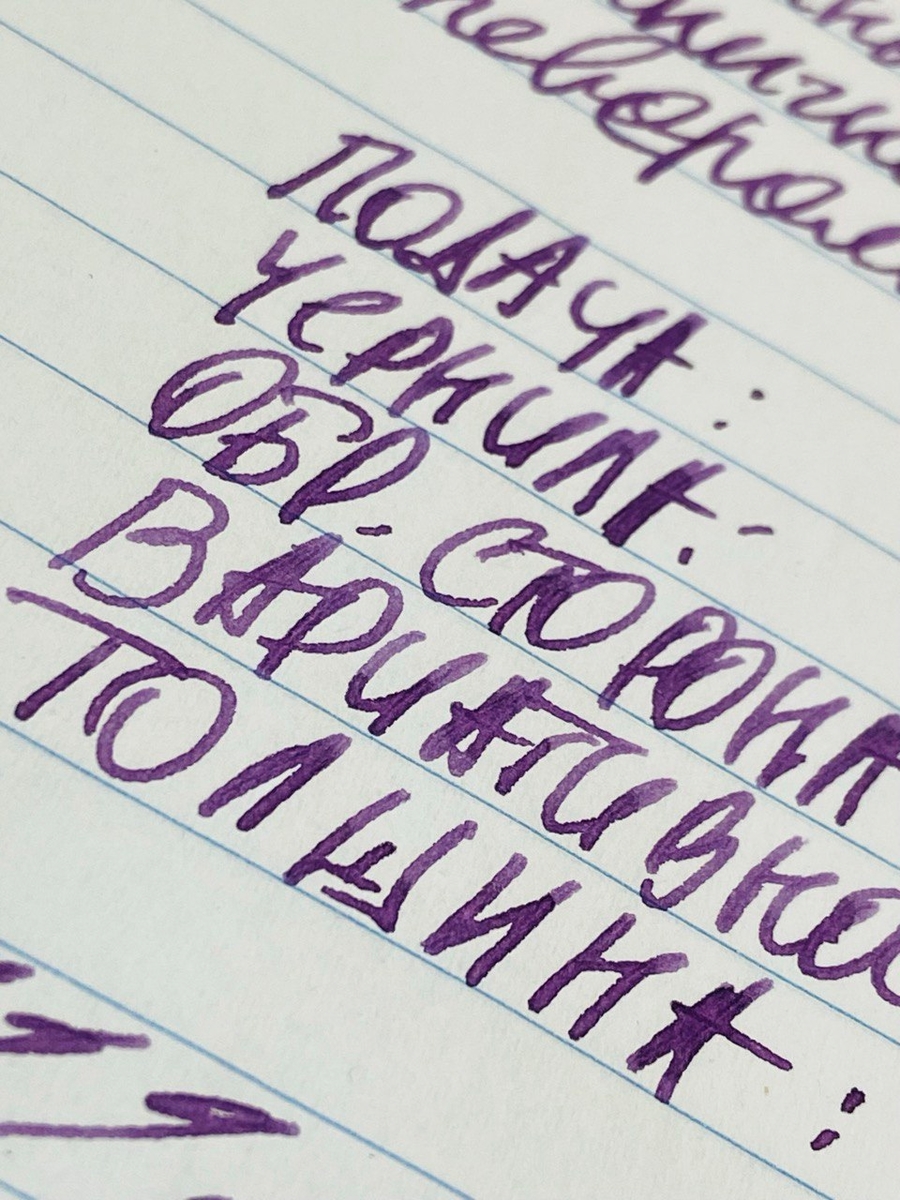 ПОДАЧА :
ЧЕРНИЛА. -
ОБР. СТОРОНА
ВАРИАТИВНО
ТОЛЩИНА :